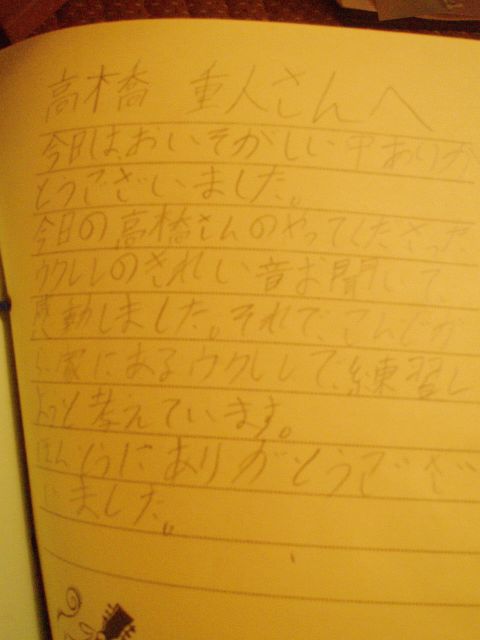 高木橋 重人さんへ
今日はおいそがしい中ありが
とうございました。
今日の高橋さんのやってくださった
ウクレレのきれしい音お聞いて、
感動しました。それで、こんどか
ら家にあるウクレレで練習し
よっと考えています。
ほんとうにありがとうござい
ました。